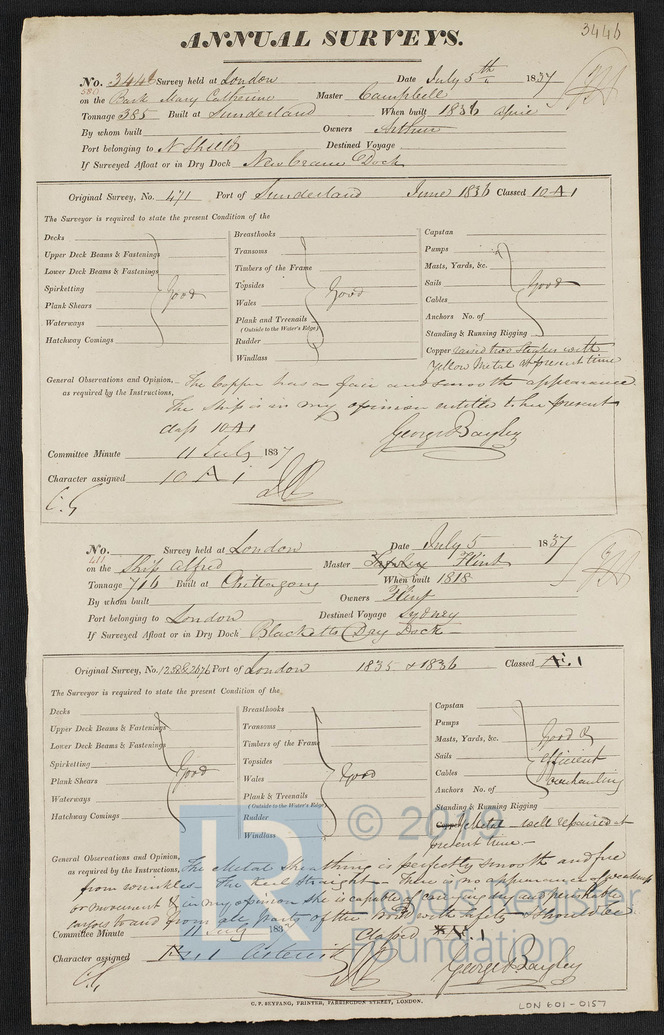 3446
ANNUAL SURVEYS.
No. 3446 Survey held at London Date July 5th 1837
580
on the Bark Mary Catherine Master Campbell
Tonnage 385 Built at Sunderland When built 1836 April
By whom built Owners Arthur
Port belonging to N Shields Destined Voyage
If Surveyed Afloat or in Dry Dock New Crane Dock
Original Survey, No. 471 Port of Sunderland June 1836 Classed 10 A 1
The Surveyor is required to state the present Condition of the
Decks
Upper Deck Beams & Fastenings
Lower Deck Beams & Fastenings
Spirketting
Plank Shears
Waterways
Hatchway Comings
Good
Breasthooks
Transoms
Timbers of the Frame
Topsides
Wales
Plank and Treenails
(Outside to the Water's Edge)
Rudder
Windlass
Good
Capstan
Pumps
Masts, Yards, &c.
Sails
Cables
Anchors No. of
Standing & Running Rigging
Good
Copper raised two strakes with
Yellow Metal at present time
General Observations and Opinion, The Copper has a fair and smooth appearance
as required by the Instructions, The Ship is in my opinion entitled to her present
class 10 A 1
George Bayley
Committee Minute 11 July 1837
Character assigned 10 A 1
No. Survey held at London Date July 5 1837
on the Ship Alfred Master Flint
Tonnage 716 Built at Chittagong When built 1818
By whom built Owners Flint
Port belonging to London Destined Voyage Sydney
If Surveyed Afloat or in Dry Dock Blacketts Dry Dock
Original Survey, No. 1288 2676 Port of London 1835 & 1836 Classed Æ 1
The Surveyor is required to state the present Condition of the
Decks
Upper Deck Beams & Fastenings
Lower Deck Beams & Fastenings
Spirketting
Plank Shears
Waterways
Hatchway Comings
Good
Breasthooks
Transoms
Timbers of the Frame
Topsides
Wales
Plank & Treenails
(Outside to the Water's Edge)
Rudder
Windlass
Good
Capstan
Pumps
Masts, Yards, &c.
Sails
Cables
Anchors No. of
Standing & Running Rigging
Good &
efficient
overhauling
Copper Metal well repaired at
present time
General Observations and Opinion, The Metal Sheathing is perfectly smooth and free
as required by the Instructions, from wrinkles - The keel straight - There is no appearance of weakness
or movement & in my opinion she is capable of carrying dry and perishable
cargoes to and from all parts of the World with safety & should be
Committee Minute 11 July 1837 Classed *Æ 1
Character assigned Æ 1 Asterisk
George Bayley
C. F. SEYFANG, PRINTER, FARRINGDON STREET, LONDON.
LON 601-0157
© 2019
LR
Lloyd's Register
Foundation